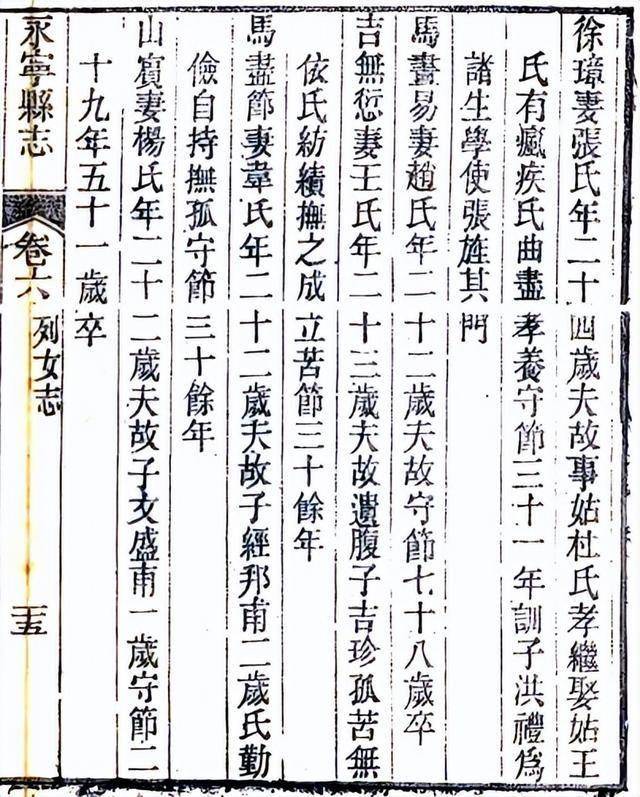 徐璋妻張氏年二十四歲夫故事姑杜氏孝繼娶姑王
氏有瘋疾氏曲盡孝養守節三十一年訓子洪禮爲
諸生學使張旌其門
馬畫易妻趙氏年二十二歲夫故守節七十八歲卒
吉無愆妻王氏年二十三歲夫故遺腹子吉珍孤苦無
依氏紡績撫之成立苦節三十餘年
馬盡節妻韋氏年二十二歲夫故子經邦甫二歲氏勤
儉自持撫孤守節三十餘年
山賓妻楊氏年二十二歲夫故子文盛甫一歲守節二
十九年五十一歲卒
永寧縣志
卷六
列女志
二十五